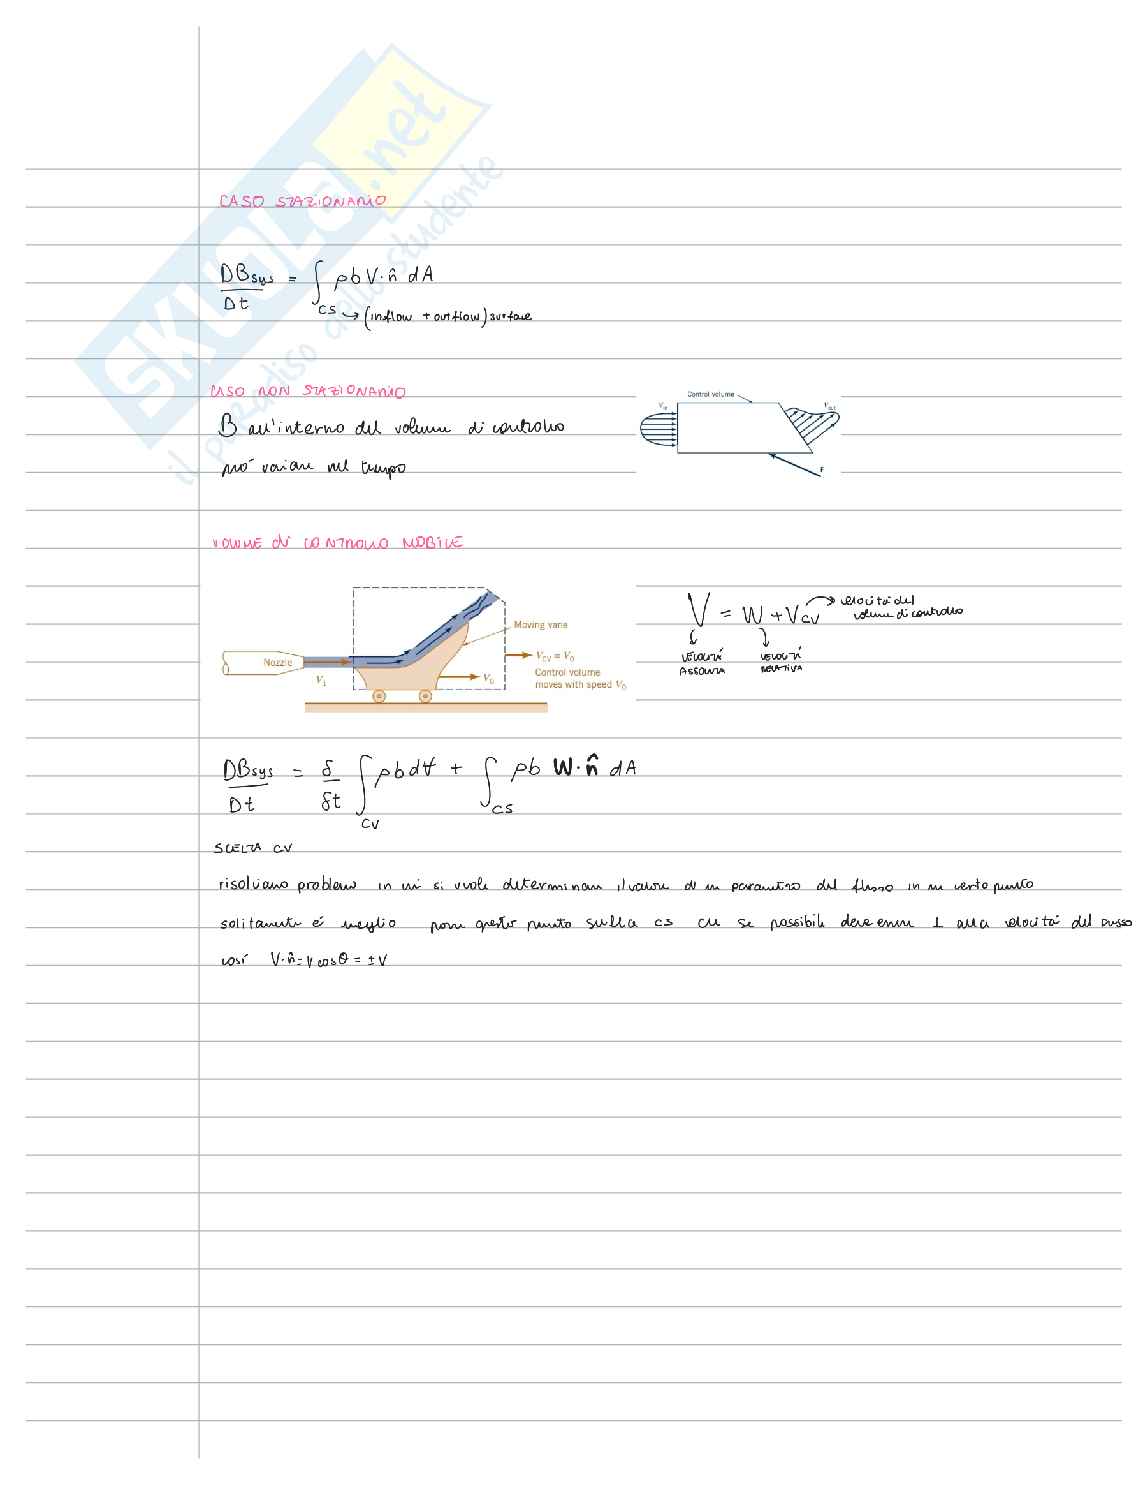 SKUOLA.net
il paradiso dello studente
CASO STAZIONARIO
DBsys/Dt = ∫CS ρbV·n̂ dA
CS → (inflow + outflow) surface
CASO NON STAZIONARIO
B all'interno del volume di controllo
può variare nel tempo
Control volume
Vin
Vout
F
VOLUME di CONTROLLO MOBILE
Nozzle
V1
Moving vane
VCV = V0
V0
Control volume
moves with speed V0
V = W + VCV
velocità del
volume di controllo
VELOCITÀ
ASSOLUTA
VELOCITÀ
RELATIVA
DBsys/Dt = δ/δt ∫CV ρb dV + ∫CS ρb W·n̂ dA
SCELTA CV
risolviamo problemi in cui si vuole determinare il valore di un parametro del flusso in un certo punto
solitamente é meglio porre questo punto sulla CS che se possibile deve essere ⊥ alla velocità del flusso
così V·n̂ = V cosθ = ±V